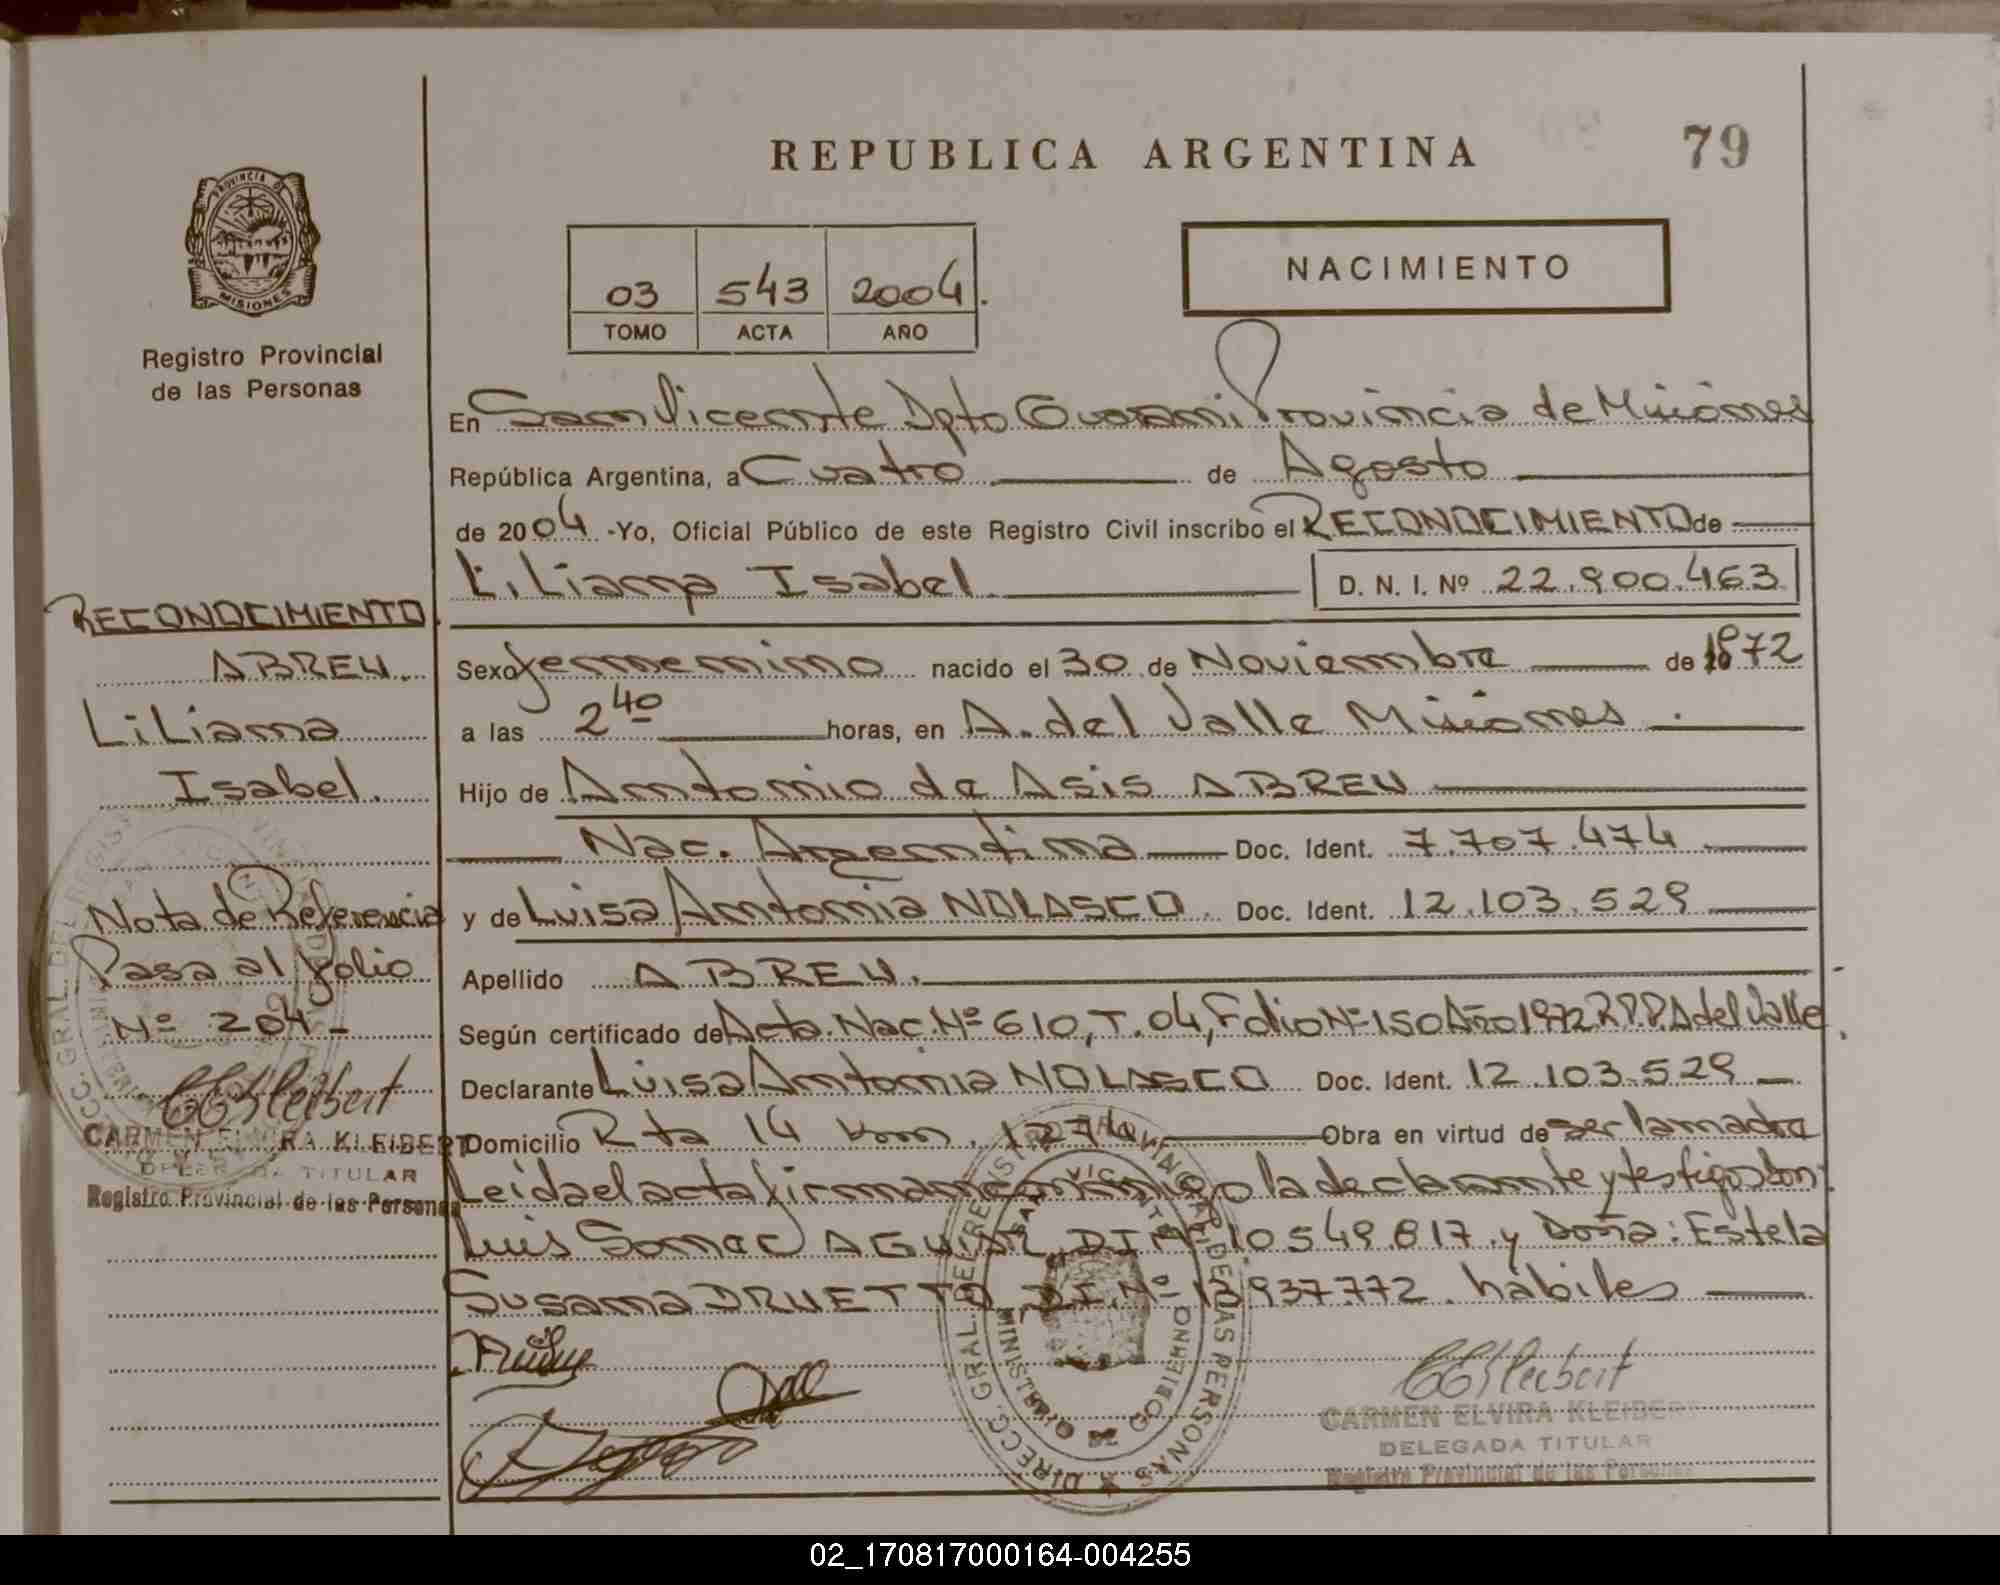 REPUBLICA ARGENTINA
79
PROVINCIA DE
MISIONES
Registro Provincial
de las Personas
03 543 2004.
TOMO ACTA AÑO
NACIMIENTO
En San Vicente Dpto Guarani Provincia de Misiones
República Argentina, a Cuatro de Agosto
de 2004 -Yo, Oficial Público de este Registro Civil inscribo el RECONOCIMIENTO de
Liliana Isabel D. N. I. Nº 22.900.463
RECONOCIMIENTO
ABREU.
Liliana
Isabel.
Sexo femenino nacido el 30 de Noviembre de 1972
a las 2 40 horas, en A. del Valle Misiones
Hijo de Antonio de Asis ABREU
Nac. Argentina Doc. Ident. 7.707.474
y de Luisa Antonia NOLASCO. Doc. Ident. 12.103.529
Nota de Referencia
Pasa al folio
Nº 204-
Apellido ABREU.
Según certificado de Acta.Nac.Nº 610, T.04, Folio Nº 150 Año 1972 R.P.P. A del Valle
Declarante Luisa Antonia NOLASCO Doc. Ident. 12.103.529
Domicilio Rta 14 Km. 1274 Obra en virtud de ser la madre
Leida el acta firman conmigo la declarante y testigos Don:
Luis Somac AGUIAR, DI Nº 10.549.817 y Doña: Estela
Susana DRUETTO DI.Nº 13937.772. hábiles
CEKleibert
CARMEN ELVIRA KLEIBERT
DELEGADA TITULAR
Registro Provincial de las Personas
DIRECC. GRAL. DEL REGISTRO PROVINCIAL DE LAS PERSONAS
SAN VICENTE
MINISTERIO DE GOBIERNO
CEKleibert
CARMEN ELVIRA KLEIBERT
DELEGADA TITULAR
Registro Provincial de las Personas
02_170817000164-004255